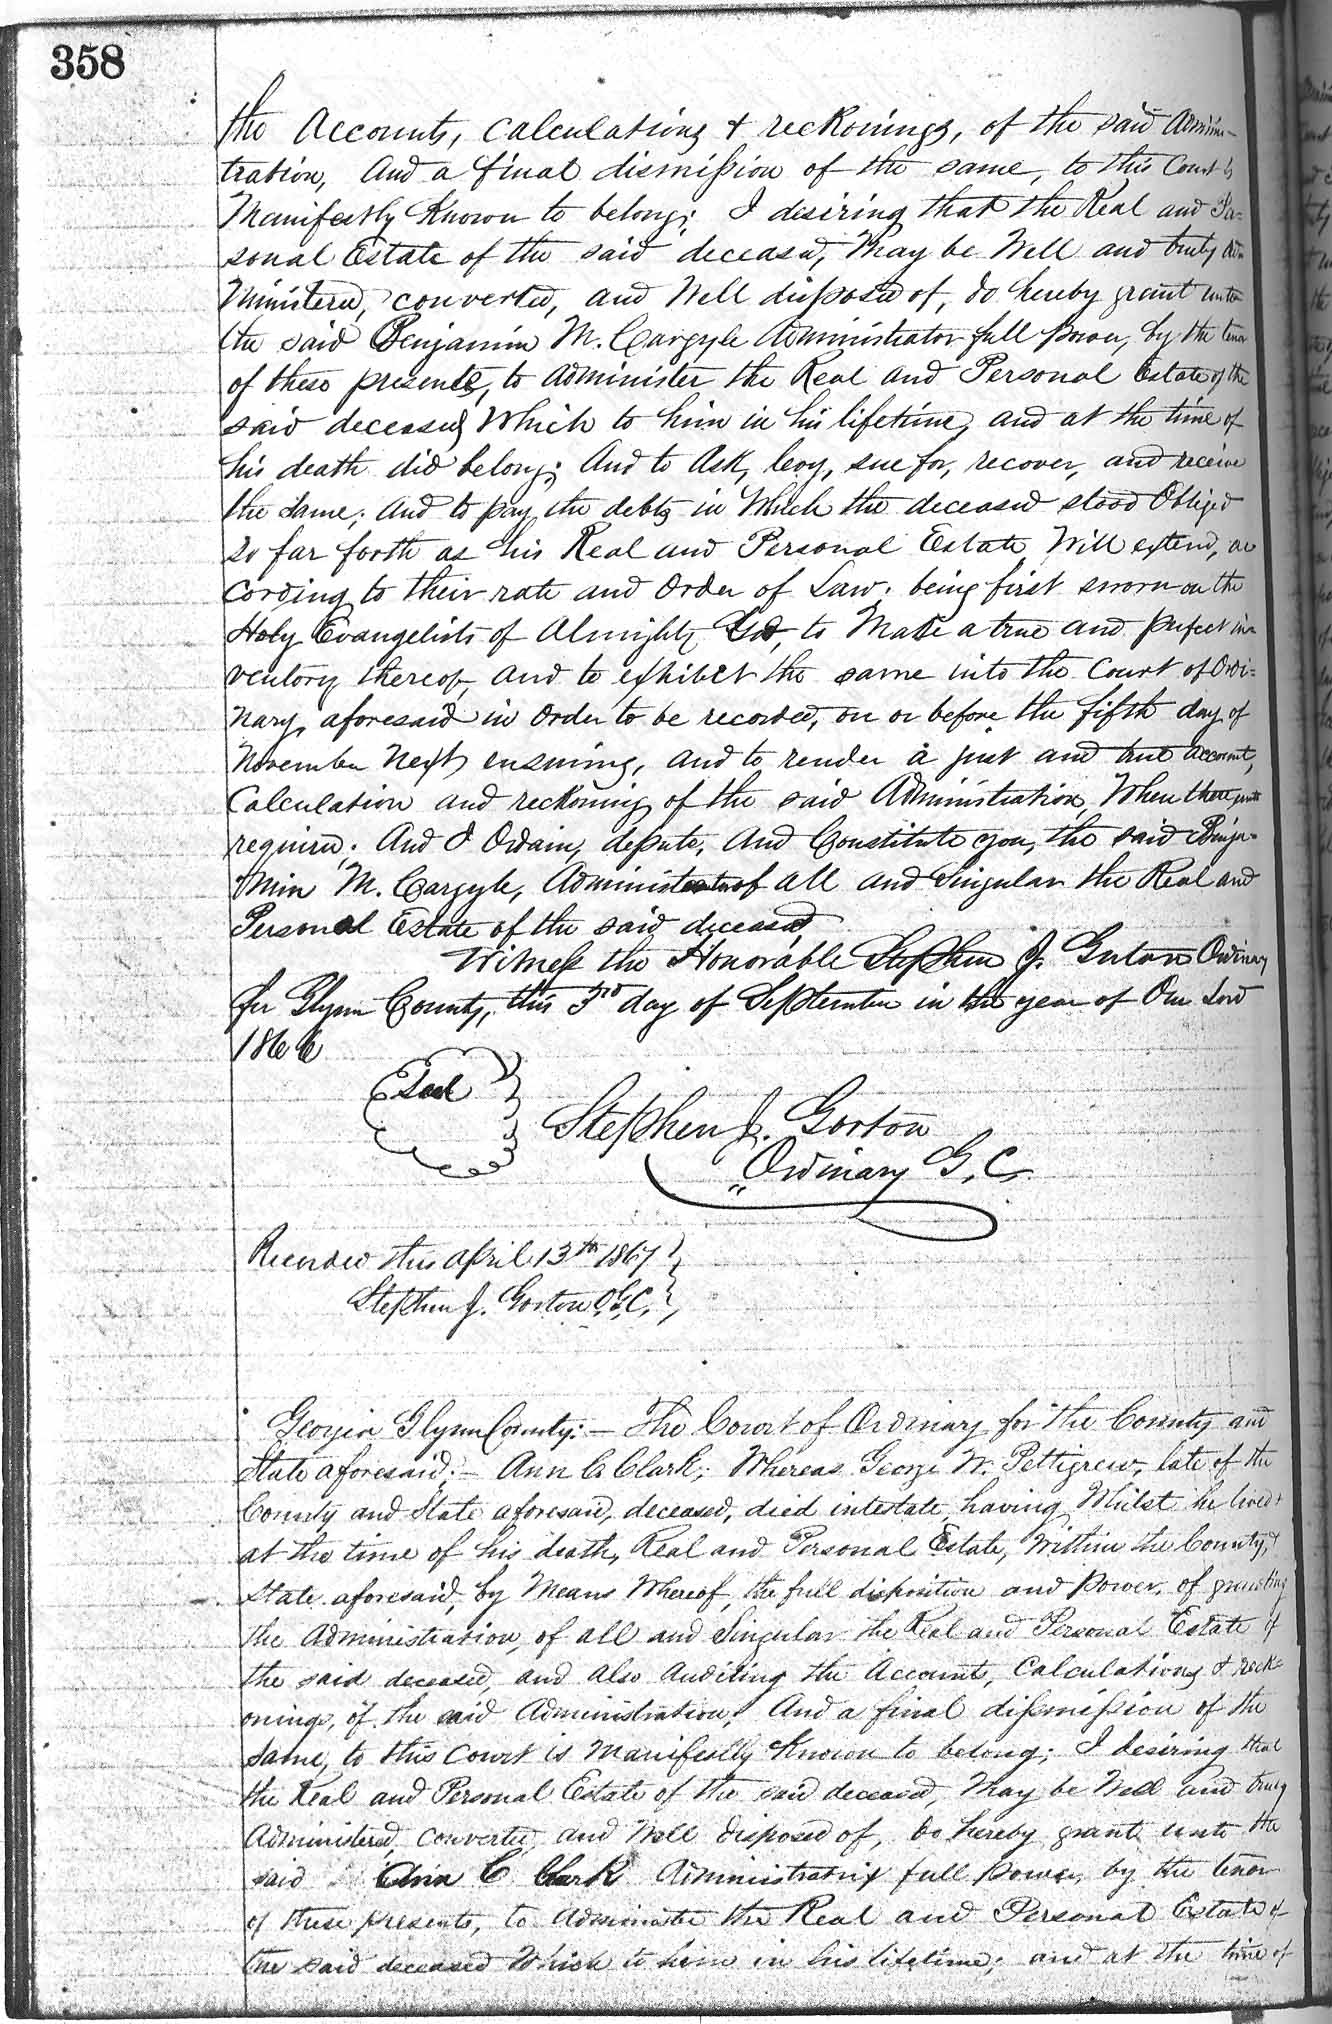 358
the Accounts, Calculations & reckonings, of the said Adminis-
tration, And a final dismission of the same, to this Court is
Manifestly Known to belong; I desiring that the Real and Per-
sonal Estate of the said deceased, May be Well and truly Ad-
ministered, converted, and Well disposed of, do hereby grant unto
the said Benjamin M. Cargyle Administrator full power, by the tenor
of these presents, to administer the Real and Personal Estate of the
said deceased Which to him in his lifetime, and at the time of
his death did belong; And to Ask, levy, sue for, recover, and receive
the same; and to pay the debts in Which the deceased stood Obliged
so far forth as his Real and Personal Estate Will extend, ac
cording to their rate and Order of Law; being first sworn on the
Holy Evangelists of Almighty God, to Make a true and perfect in-
ventory thereof, and to exhibit the same into the Court of Ordi=
nary, aforesaid in Order to be recorded, on or before the fifth day of
November Next ensuing, and to render a just and true account,
Calculation and reckoning of the said Administration, When thereunto
required; And I Ordain, depute, And Constitute you, the said Benja-
min M. Cargyle, Administrator of all and Singular the Real and
Personal Estate of the said deceased
Witness the Honorable Stephen J. Gorton Ordinary
for Glynn County, this 3rd day of September in the year of Our Lord
1866
Seal
Stephen J. Gorton
Ordinary G. C.
Recorded this April 13th 1867
Stephen J. Gorton O.G.C.
Georgia Glynn County:— The Court of Ordinary for the County and
State aforesaid:— Ann C. Clark; Whereas George W. Pettigrew, late of the
County and State aforesaid, deceased, died intestate, having Whilst he lived &
at the time of his death, Real and Personal Estate, Within the County &
State aforesaid, by Means Whereof, the full disposition and power, of granting
the Administration, of all and Singular the Real and Personal Estate of
the said deceased, and also Auditing the Accounts, Calculations & reck=
onings, of the said Administration, And a final dismission of the
same, to this Court is Manifestly Known to belong; I desiring that
the Real and Personal Estate of the said deceased, May be Well and truly
Administered, converted, and Well disposed of, do hereby grant unto the
said Ann C Clark Administratrix full power, by the tenor
of these presents, to Administer the Real and Personal Estate of
the said deceased Which to him in his lifetime, and at the time of